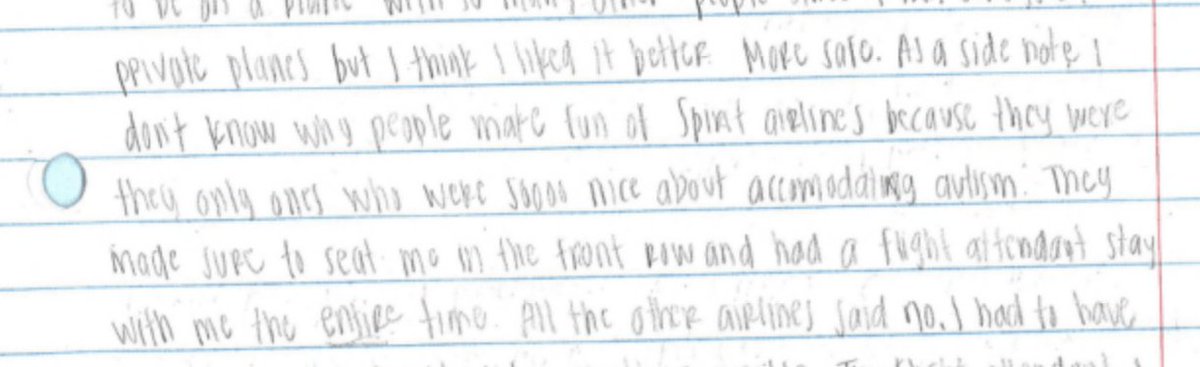 to be on a plane with so many other people
private planes but I think I liked it better. More safe. As a side note, I
don't know why people make fun of Spirit airlines because they were
they only ones who were soooo nice about accomodating autism. They
made sure to seat me in the front row and had a flight attendant stay
with me the entire time. All the other airlines said no. I had to have